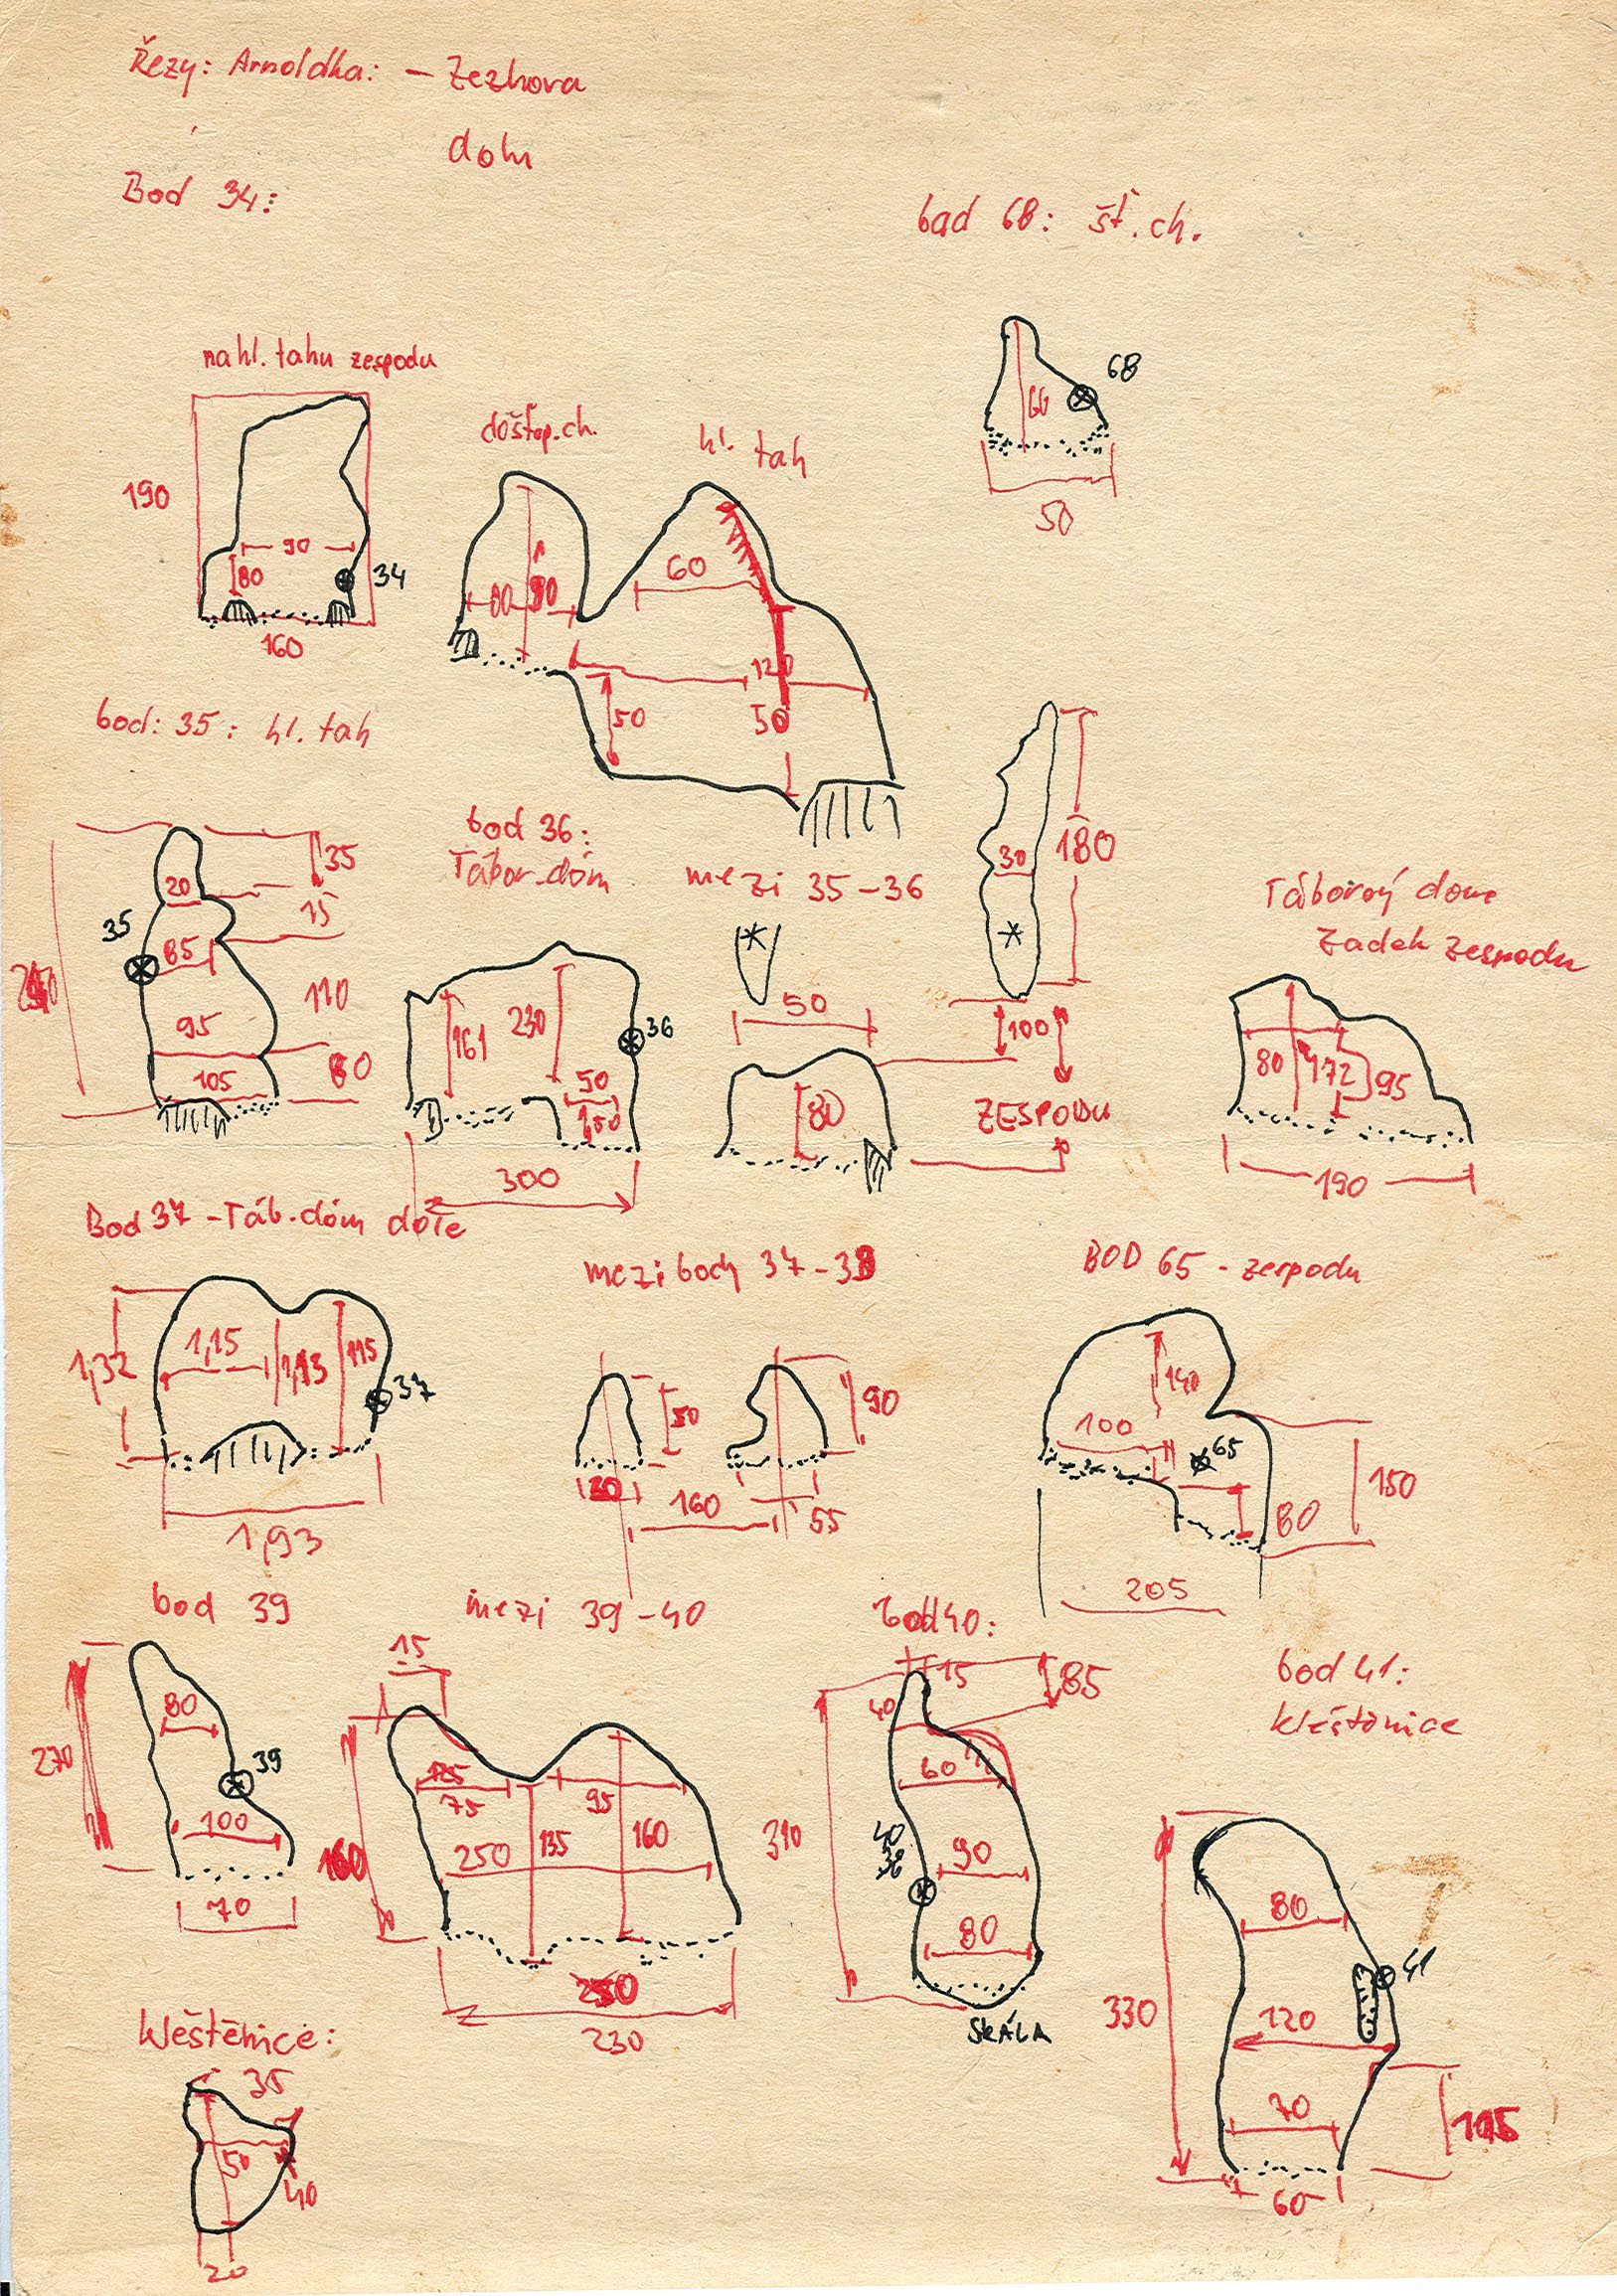 Řezy: Arnoldka: – Zezhora
dolu
Bod 34:
bod 68: št. ch.
na hl. tahu zespodu
190
90
80
34
160
do štop. ch.
hl. tah
80
60
120
50
50
68
66
50
bod: 35: hl. tah
35
20
15
35
85
110
95
105
bod 36:
Tábor. dóm
161
230
36
50
300
mezi 35–36
50
80
30
180
100
ZESPODU
Táborový dóm
Zadek zespodu
80
172
95
190
Bod 37 – Táb. dóm dole
1,32
1,15
1,13
115
37
1,93
mezi body 37–38
50
30
160
90
55
BOD 65 – zespodu
140
100
65
150
80
205
bod 39
270
80
39
100
70
mezi 39–40
15
75
95
250
135
160
160
230
bod 40:
15
85
40
60
310
40
90
80
SKÁLA
bod 41:
kleštěnice
330
80
41
120
70
115
60
kleštěnice:
35
50
40
20